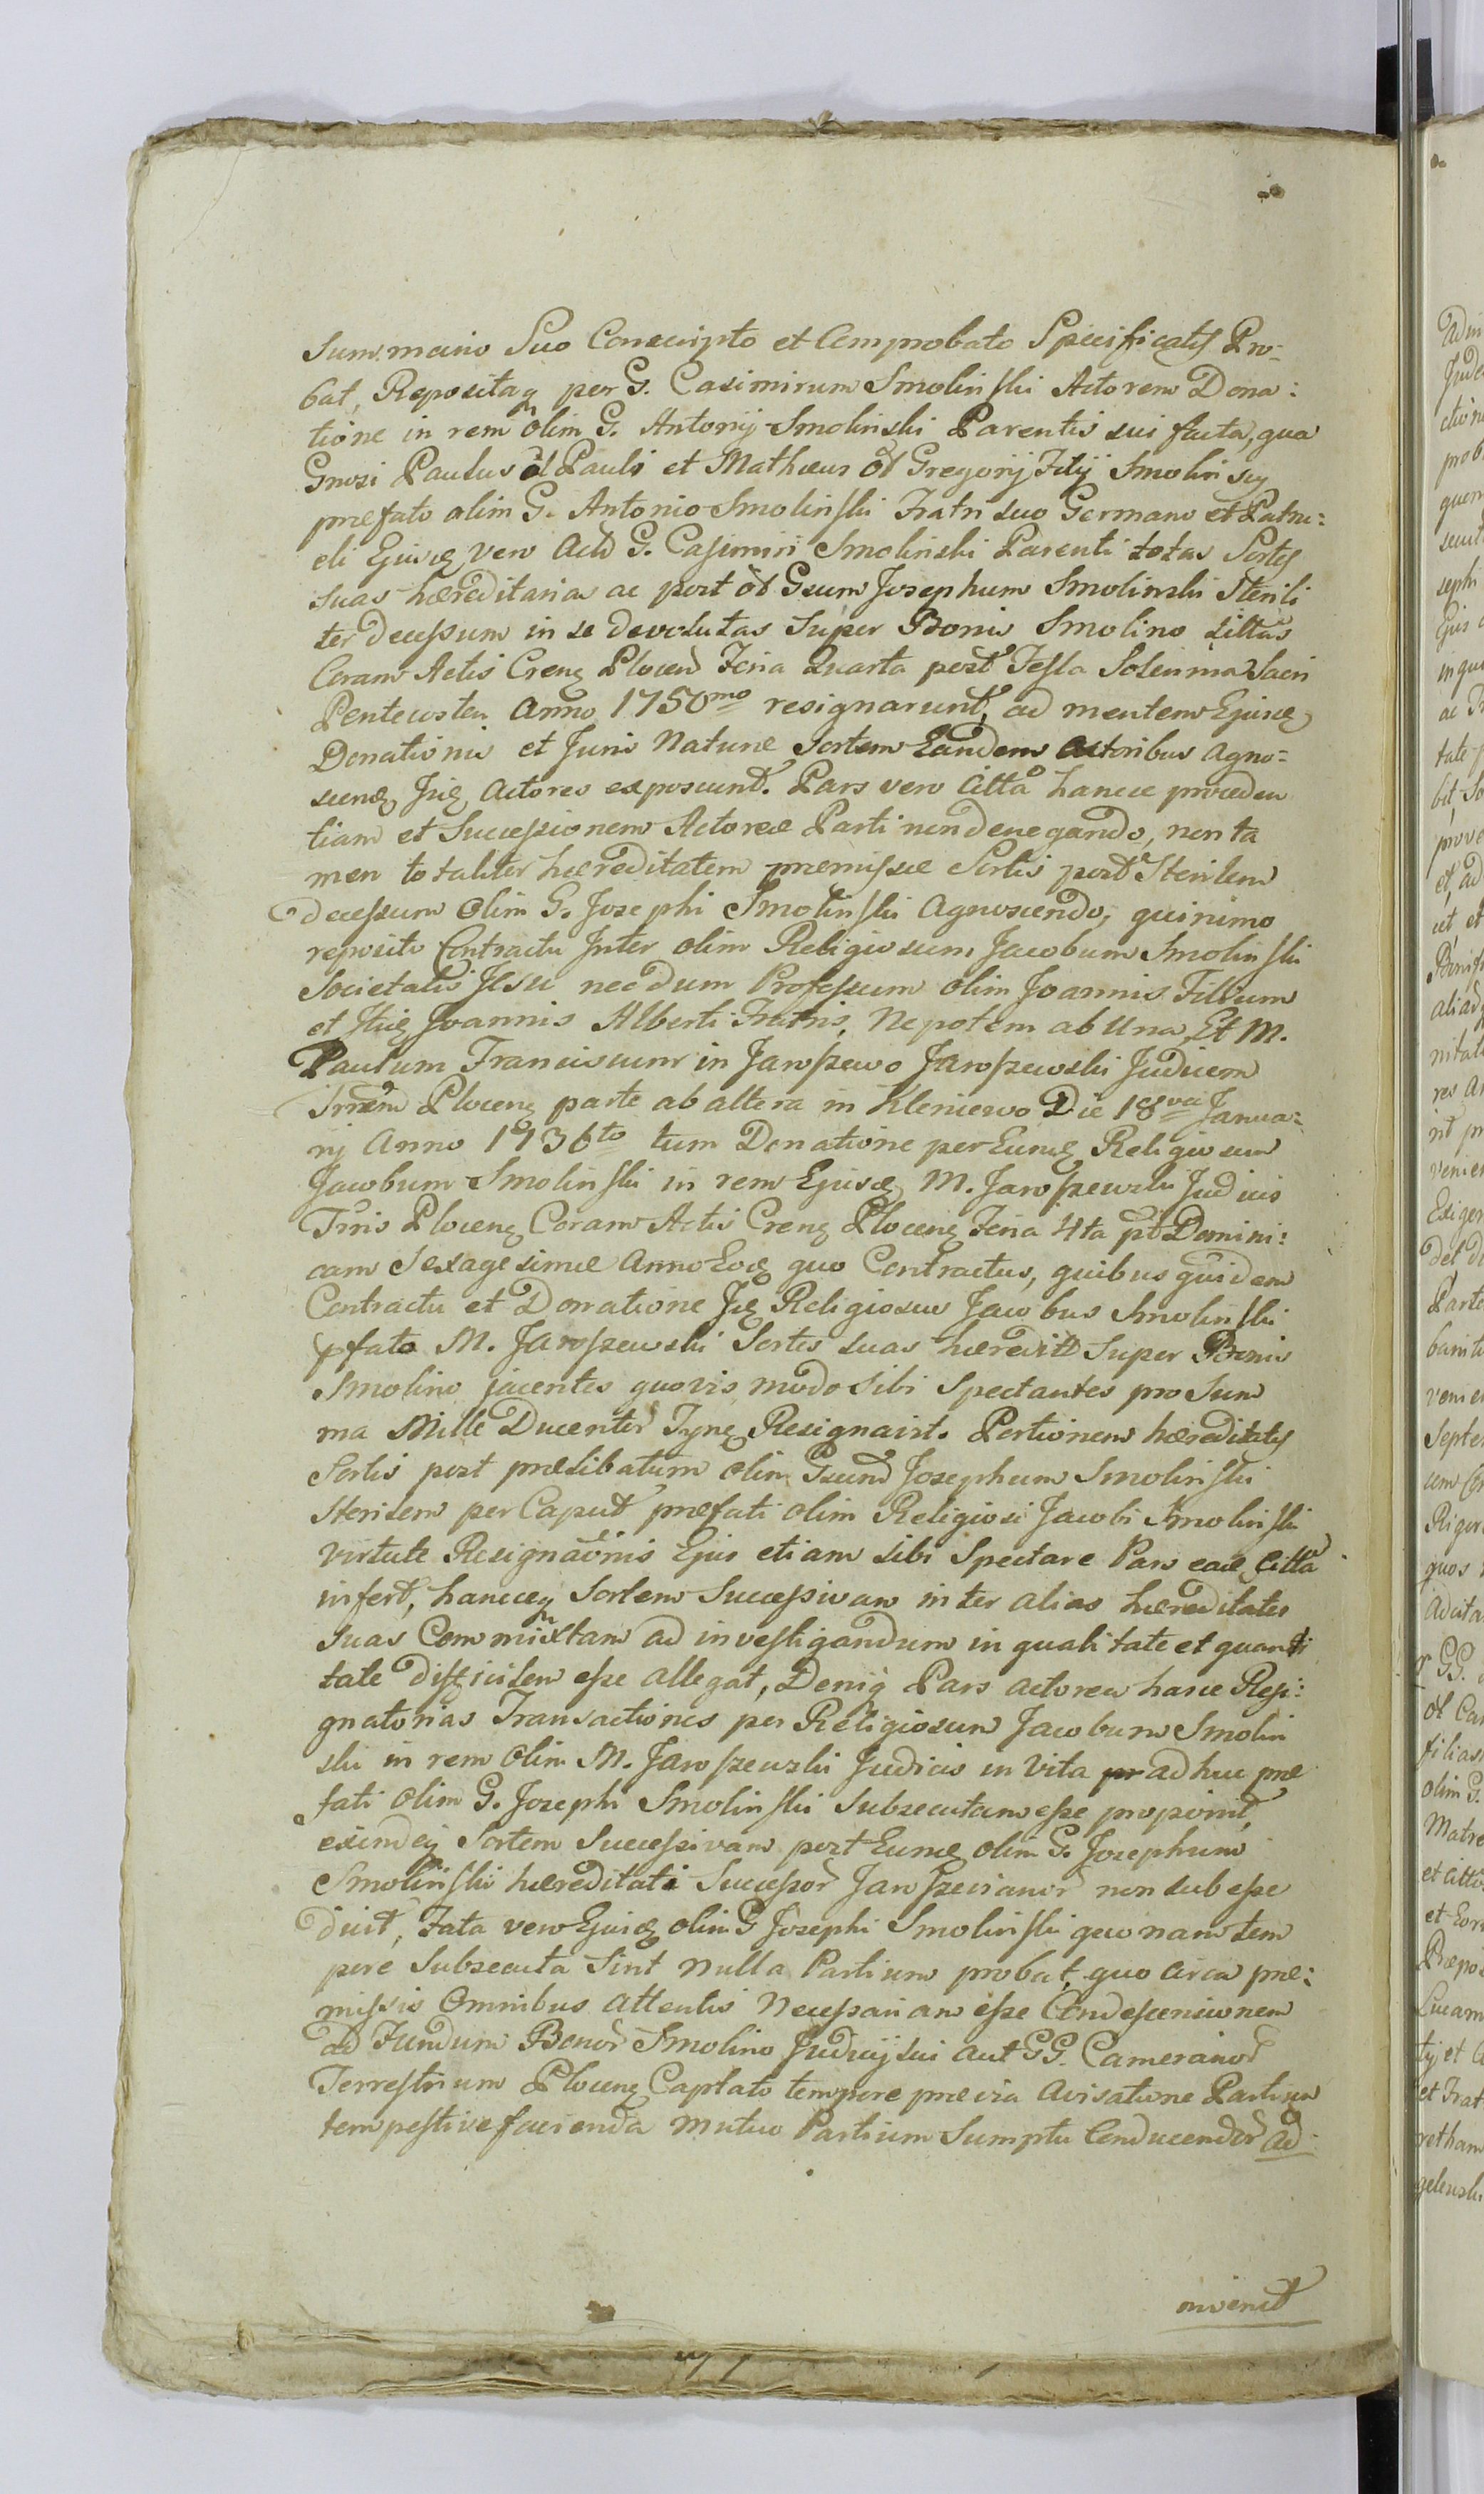 Summario Suo Conscripto et Comprobato Specificatis Pro-
bat, Repositaq per G. Casimirum Smolinski Actorem Dona:
tione in rem olim G. Antonij Smolinski Parentis sui facta, qua
Gnosi Paulus ol Pauli et Mathæus ol Gregorij Filij Smolinscy
præfato olim G. Antonio Smolinski Fratri suo Germano et Patru:
eli Ejusq vero Act G. Casimiri Smolinski Parenti totas Sortes
suas hæreditarias ac post ol Gsum Josephum Smolinski Sterili
ter decessum in se devolutas Super Bonis Smolino sittas
Coram Actis Crens Plocen Feria Quarta post Festa Solennia Sacri
Pentecostes Anno 1750mo resignarunt, ad mentem Ejusq
Donationis et Juris Naturæ Sortem Eandem Actoribus Agno-
scend Jiiq Actores exposcunt. Pars vero Citta hancce proceden
tiam et Successionem Actoreæ Parti non denegando, non ta
men totaliter hæreditatem præmissæ Sortis post Sterilem
decessum Olim G. Josephi Smolinski Agnoscendo, quinimo
reposito Contractu Inter olim Religiosum Jacobum Smolinski
Societatis Jesu necdum Professum olim Joannis Filium
et Jtiiq Joannis Alberti Fratris, Nepotem ab Una, Et M.
Paulum Franciscum in Jaroszewo Jaroszewski Judicem
Trrem Plocens parte ab altera in Kleniewo Die 18va Janua:
rij Anno 1736to tum Donatione per Eumq Religiosum
Jacobum Smolinski in rem Ejusq M. Jaroszewski Judicis
Trris Plocens Coram Actis Crens Plocens Feria 4ta pt Domini:
cam Sexagesimæ Anno Eoq quo Contractus, quibus quidem
Contractu et Donatione Jq Religiosus Jacobus Smolinski
pfato M. Jaroszewski Sortes suas hæredit Super Bonis
Smolino jacentes quovis modo sibi Spectantes pro Sum
ma Mille Ducentor Tynf Resignavit. Portionem hæreditatis
Sortis post prælibatum olim Gsum Josephum Smolinski
Sterilem per Caput præfati olim Religiosi Jacobi Smolinski
virtute Resignaonis Ejus etiam sibi Spectare Pars eadem Citta
infert, hancceq Sortem Successivam inter alias hæreditates
suas Commixtam ad investigandum in qualitate et quanti
tate difficilem esse allegat, Deniq Pars Actorea hasce Resi:
gnatorias Transactiones per Religiosum Jacobum Smolin
ski in rem olim M. Jaroszewski Judicis in Vita adhuc præ
fati olim G. Josephi Smolinski Subsecutam esse proponit,
exindeq Sortem Successivam post Eumq olim G. Josephum
Smolinski hæreditati Successor Jaroszevianor non subesse
ducit, Fata vero Ejusq olim G Josephi Smolinski quonam tem
pore Subsecuta Sint nulla Partium probat, quo circa præ:
missis Omnibus attentis Necessariam esse Condescensionem
ad Fundum Bonor Smolino Judicij sui aut GG. Camerarior
Terrestrium Plocens Captato tempore prævia Avisatione Partium
tempestive facienda Mutuo Partium Sumptu Conducendor ad
invenit